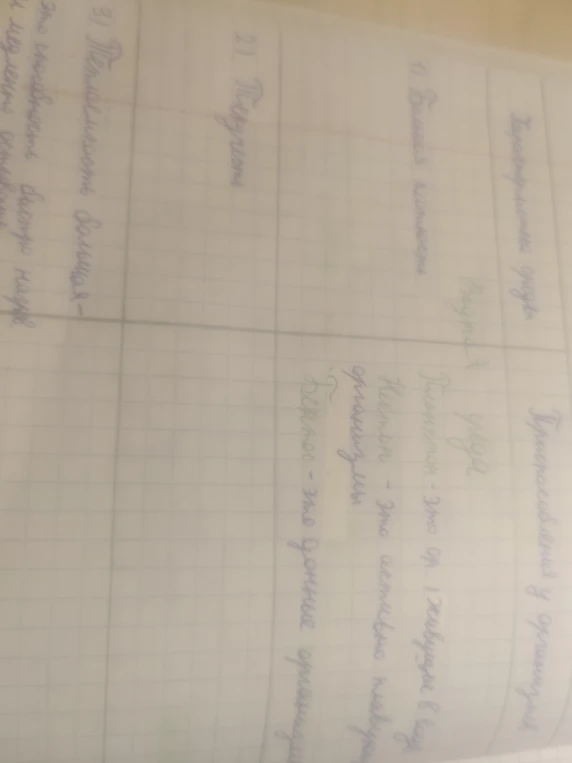 Характеристика среды
Приспособления у организмов
Водная среда
1) Большая плотность
Планктон - это ор., живущие в воде
Нектон - это активно плавающие
организмы
Бентос - это донные организмы
2) Текучесть
3) Теплоёмкость большая -
это способность быстро нагре
и медленно